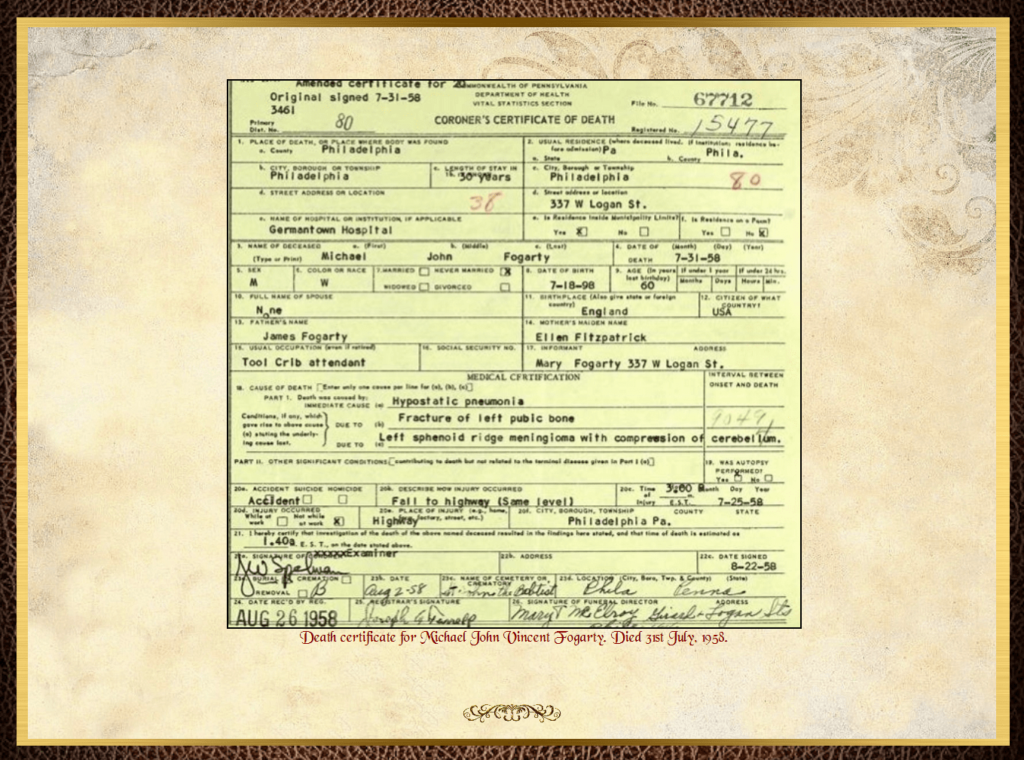 Amended certificate for 20 COMMONWEALTH OF PENNSYLVANIA
Original signed 7-31-58 DEPARTMENT OF HEALTH
3461 VITAL STATISTICS SECTION File No. 67712
Primary Dist. No. 80 CORONER'S CERTIFICATE OF DEATH Registered No. 15477
1. PLACE OF DEATH, OR PLACE WHERE BODY WAS FOUND 2. USUAL RESIDENCE (where deceased lived. if institution: residence before admission)
a. County Philadelphia a. State Pa b. County Phila.
b. CITY, BOROUGH OR TOWNSHIP c. LENGTH OF STAY IN c. City, Borough or Township
Philadelphia 30 years Philadelphia 80
d. STREET ADDRESS OR LOCATION 38 d. Street address or location
337 W Logan St.
e. NAME OF HOSPITAL OR INSTITUTION, IF APPLICABLE e. Is Residence Inside Municipality Limits? f. Is Residence on a Farm?
Germantown Hospital Yes X No Yes No X
3. NAME OF DECEASED a. (First) b. (Middle) c. (Last) 4. DATE OF DEATH (Month) (Day) (Year)
(Type or Print) Michael John Fogarty 7-31-58
5. SEX 6. COLOR OR RACE 7. MARRIED NEVER MARRIED X 8. DATE OF BIRTH 9. AGE (In years last birthday) If under 1 year If under 24 hrs.
M W WIDOWED DIVORCED 7-18-98 60 Months Days Hours Min.
10. FULL NAME OF SPOUSE 11. BIRTHPLACE (Also give state or foreign country) 12. CITIZEN OF WHAT COUNTRY?
None England USA
13. FATHER'S NAME 14. MOTHER'S MAIDEN NAME
James Fogarty Ellen Fitzpatrick
15. USUAL OCCUPATION (even if retired) 16. SOCIAL SECURITY NO. 17. INFORMANT ADDRESS
Tool Crib attendant Mary Fogarty 337 W Logan St.
MEDICAL CERTIFICATION INTERVAL BETWEEN ONSET AND DEATH
18. CAUSE OF DEATH [Enter only one cause per line for (a), (b), (c)]
PART 1. Death was caused by:
IMMEDIATE CAUSE (a) Hypostatic pneumonia
Conditions, if any, which gave rise to above cause (a) stating the underlying cause last.
DUE TO (b) Fracture of left pubic bone 9049
DUE TO (c) Left sphenoid ridge meningioma with compression of cerebellum.
PART II. OTHER SIGNIFICANT CONDITIONS [contributing to death but not related to the terminal disease given in Part I (a)] 19. WAS AUTOPSY PERFORMED?
Yes No
20a. ACCIDENT SUICIDE HOMICIDE 20b. DESCRIBE HOW INJURY OCCURRED 20c. Time of Injury Month Day Year
Accident Fall to highway (Same level) E.S.T. 7-25-58
20d. INJURY OCCURRED 20e. PLACE OF INJURY (e.g., home, factory, street, etc.) 20f. CITY, BOROUGH, TOWNSHIP COUNTY STATE
While at work Not while at work X Highway Philadelphia Pa.
21. I hereby certify that investigation of the death of the above named deceased resulted in the findings here stated, and that time of death is estimated as
1.40a E.S.T., on the date stated above.
22a. SIGNATURE OF xxxxxExaminer 22b. ADDRESS 22c. DATE SIGNED
JW Spelman 8-22-58
23a. BURIAL CREMATION REMOVAL B 23b. DATE 23c. NAME OF CEMETERY OR CREMATORY 23d. LOCATION (City, Boro, Twp. & County) (State)
Aug 2-58 St John the Baptist Phila Penna
24. DATE REC'D BY REG. 25. REGISTRAR'S SIGNATURE 26. SIGNATURE OF FUNERAL DIRECTOR ADDRESS
AUG 26 1958 Joseph Mary T McElroy Logan Sts
Death certificate for Michael John Vincent Fogarty. Died 31st July, 1958.